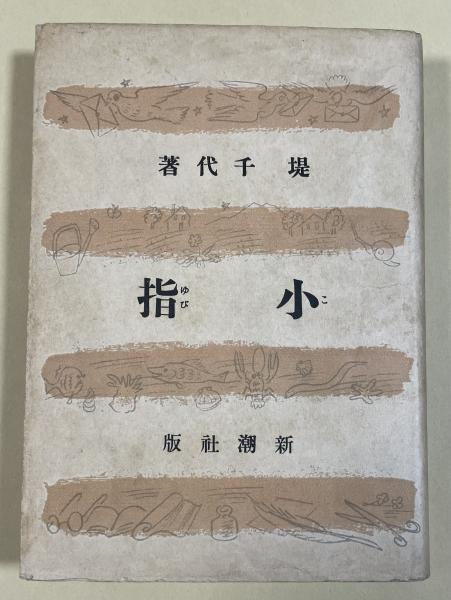 堤千代著
小指
こゆび
新潮社版